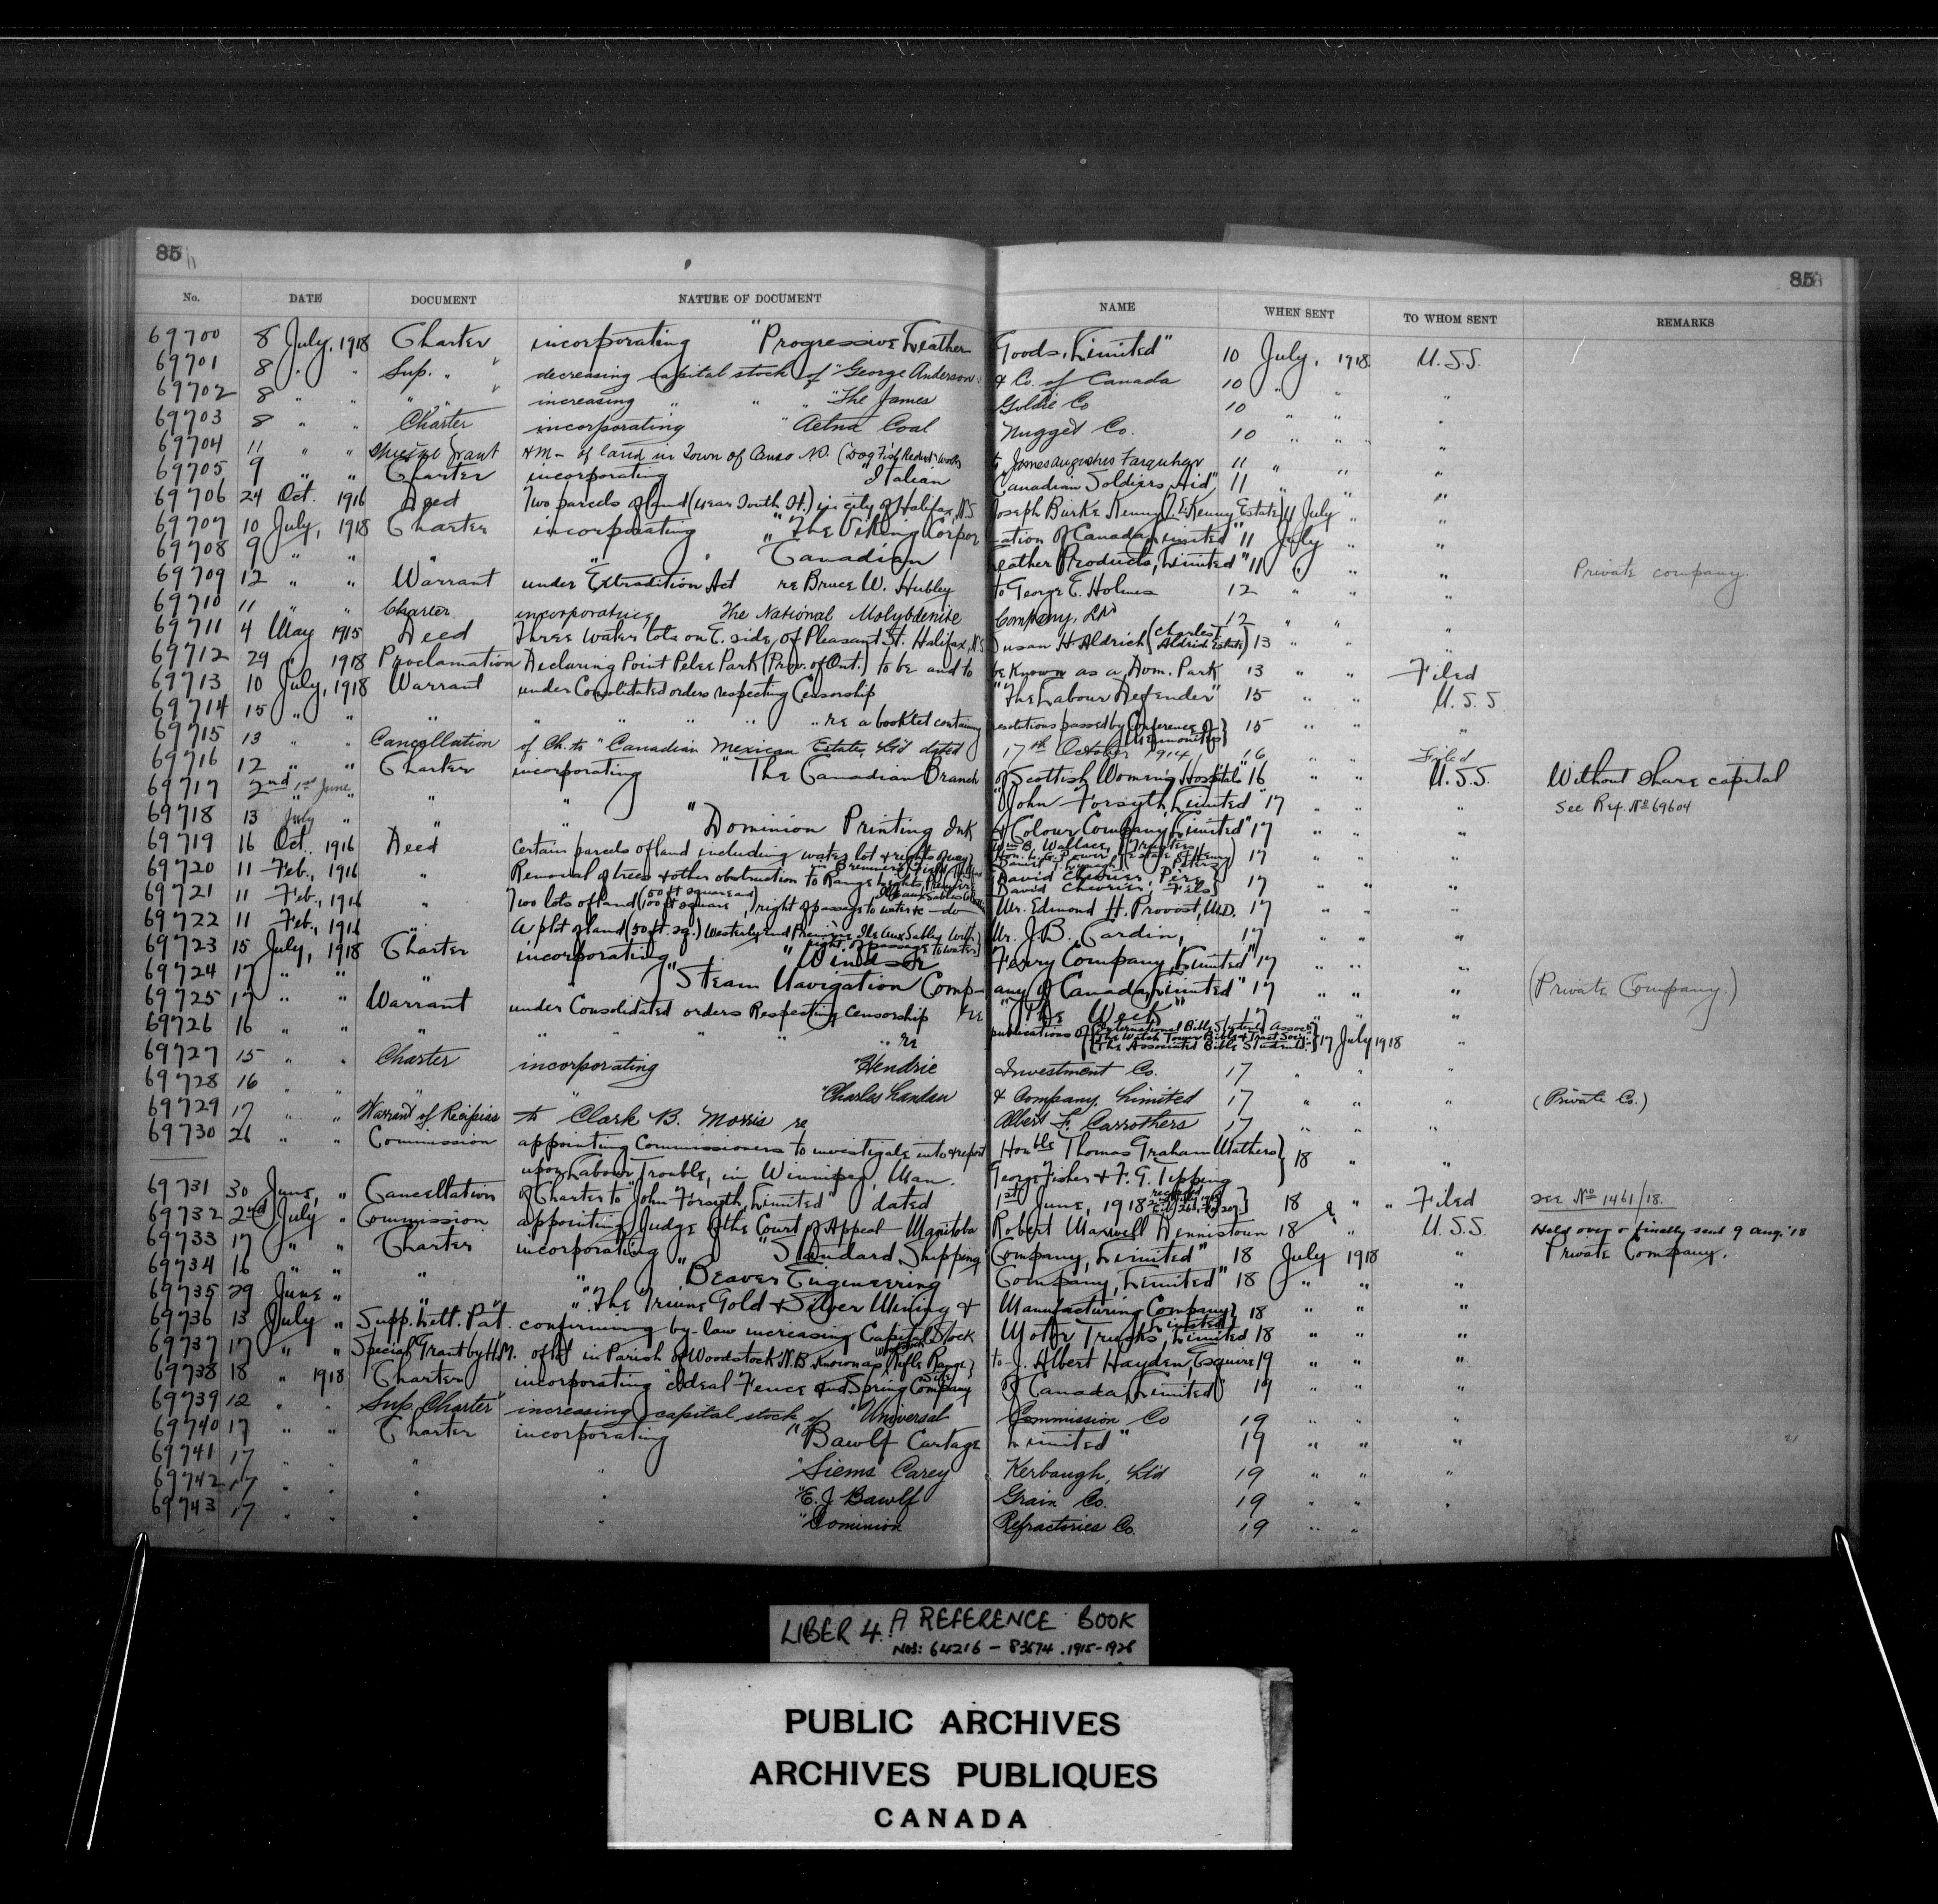 85
85
No. DATE DOCUMENT NATURE OF DOCUMENT NAME WHEN SENT TO WHOM SENT REMARKS
69700 8 July, 1918 Charter incorporating "Progressive Leather Goods, Limited" 10 July, 1918 U.S.S.
69701 8 " " Sup. " decreasing capital stock of "George Anderson & Co. of Canada 10 " "
69702 8 " " " " increasing " " " "The James Goldie Co 10 " " "
69703 8 " " Charter incorporating "Aetna Coal Nugget Co. 10 " " "
69704 11 " " Special Grant HM - of land in Town of Canso N.S. (Dog Fish Reduct. Works to James Augustus Farquhar 11 " " "
69705 9 " " Charter incorporating "Italian Canadian Soldiers Aid" 11 " "
69706 24 Oct. 1916 Deed Two parcels of land (near South St.) in city of Halifax, N.S. Joseph Burke Kenny (T.E. Kenny Estate) 11 July " "
69707 10 July, 1918 Charter incorporating "The Viking Corporation of Canada, Limited" 11 July " "
69708 9 " " " " "Canadian Leather Products, Limited" 11 " " " Private company.
69709 12 " " Warrant under Extradition Act re Bruce W. Hubley to George E. Holmes 12 " " "
69710 11 " " Charter incorporating The National Molybdenite Company, Ltd 12 " " "
69711 4 May 1915 Deed Three water lots on E. side of Pleasant St. Halifax, N.S. Susan H. Aldrich (Charles T. Aldrich Estate) 13 " " "
69712 29 " 1918 Proclamation Declaring Point Pelee Park (Prov. of Ont.) to be and to be known as a Dom. Park 13 " " Filed
69713 10 July, 1918 Warrant under Consolidated orders respecting Censorship "The Labour Defender" 15 " " U.S.S
69714 15 " " " " " " " " re a booklet containing resolutions passed by Conference of Mennonites 15 " " "
69715 13 " " Cancellation of Ch. to "Canadian Mexican Estates, Ltd dated 17th October 1914 16 " " Filed
69716 12 " " Charter incorporating "The Canadian Branch of Scottish Womens Hospitals" 16 " " U.S.S. Without share capital
69717 2nd 1st June " " " "John Forsyth, Limited" 17 " " " See Ref. No 69604
69718 13 July " " " "Dominion Printing Ink & Colour Company, Limited" 17 " " "
69719 16 Oct. 1916 Deed Certain parcels of land including water lot & rights of way Wm B. Wallace, Hon. L. G. Power, Daniel Trustees Estate of Henry Peters) 17 " " "
69720 11 Feb., 1916 " Removal of trees & other obstruction to Range lights, David Chevrier, Père David Chevrier, Fils 17 " " "
69721 11 Feb., 1916 " Two lots of land (50 ft square and 100 ft square), right of passage to water &c —do— Mr. Edmond H. Provost, M.D. 17 " " "
69722 11 Feb., 1916 A plot of land (50 ft. sq.) Westerly end Première Ile aux Sables with right of passage to water Mr. J.B. Cardin, 17 " " "
69723 15 July, 1918 Charter incorporating "Windsor Ferry Company, Limited" 17 " " "
69724 17 " " " " "Steam Navigation Company of Canada, Limited" 17 " " " (Private Company.)
69725 17 " " Warrant under Consolidated orders Respecting Censorship re "The Week" 17 " " "
69726 16 " " " " " " " " re publications of International Bible Students Assoc. The Watch Tower Bible & Tract Soc. The Associated Bible Students 17 July 1918 "
69727 15 " " Charter incorporating "Hendrie Investment Co. 17 " " "
69728 16 " " " " "Charles Landau & Company, Limited 17 " " " (Private Co.)
69729 17 " " Warrant of Recipias to Clark B. Morris re Albert F. Carrothers 17 " " "
69730 26 " " Commission appointing Commissioners to investigate into & report Honble Thomas Graham Mathers
upon Labour Trouble, in Winnipeg, Man. George Fisher & F. G. Tipping 18 " "
69731 30 June, " Cancellation of Charter to "John Forsyth, Limited" dated 1st June, 1918 18 " " Filed see No 1461/18.
69732 2nd July " Commission appointing Judge of the Court of Appeal - Manitoba Robert Maxwell Dennistoun 18 " U.S.S. Held over & finally sent 9 Aug. '18
69733 17 " " Charter incorporating "Standard Shipping Company, Limited" 18 July 1918 " Private Company.
69734 16 " " " " "Beaver Engineering Company, Limited" 18 " " "
69735 29 June " " " "The Triune Gold & Silver Mining & Manufacturing Company Limited 18 " " "
69736 13 July " Supp. Lett. Pat. confirming by-law increasing Capital Stock Motor Trucks, Limited 18 " " "
69737 17 " " Special Grant by H.M. of lot in Parish of Woodstock N.B. Known as Woodstock Rifle Range Site to - J. Albert Hayden, Esquire 19 " " "
69738 18 " 1918 Charter incorporating "Ideal Fence and Spring Company of Canada, Limited" 19 " " "
69739 12 " " Sup. Charter increasing capital stock of "Universal Commission Co 19 " " "
69740 17 " " Charter incorporating "Bawlf Cartage Limited" 19 " " "
69741 17 " " " " "Siems Carey Kerbaugh, Ltd 19 " " "
69742 17 " " " " "E. J. Bawlf Grain Co. 19 " " "
69743 17 " " " " "Dominion Refractories Co. 19 " "
LIBER 4. A REFERENCE BOOK
NOS: 64216 - 83674 . 1915-1928
PUBLIC ARCHIVES
ARCHIVES PUBLIQUES
CANADA